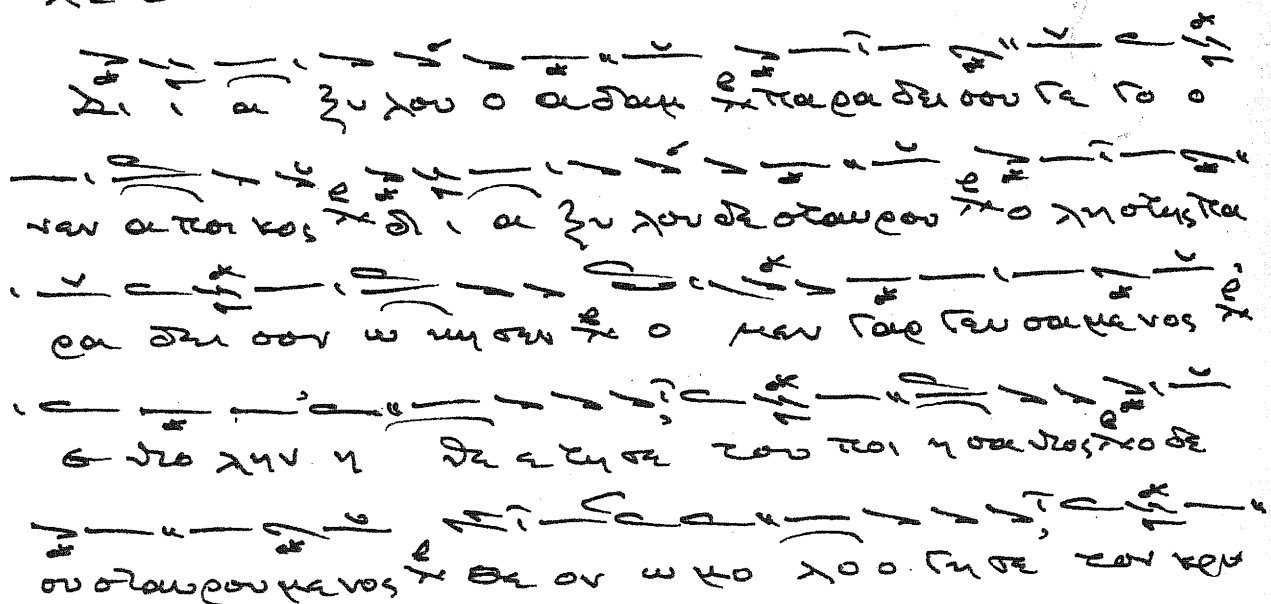 Δι ι α ξυ λου ο αδαμ παρα δει σου γε γο ο
νεν α ποι κος δι ι α ξυ λου δε σταυρου ο λη στης πα
ρα δει σον ω κη σεν ο μεν γαρ γευ σα με νος
εν το λην η θε ε τη σε του ποι η σαν τος ο δε
συ σταυρου με νος θε ον ω μο λο ο γη σε τον κρυ